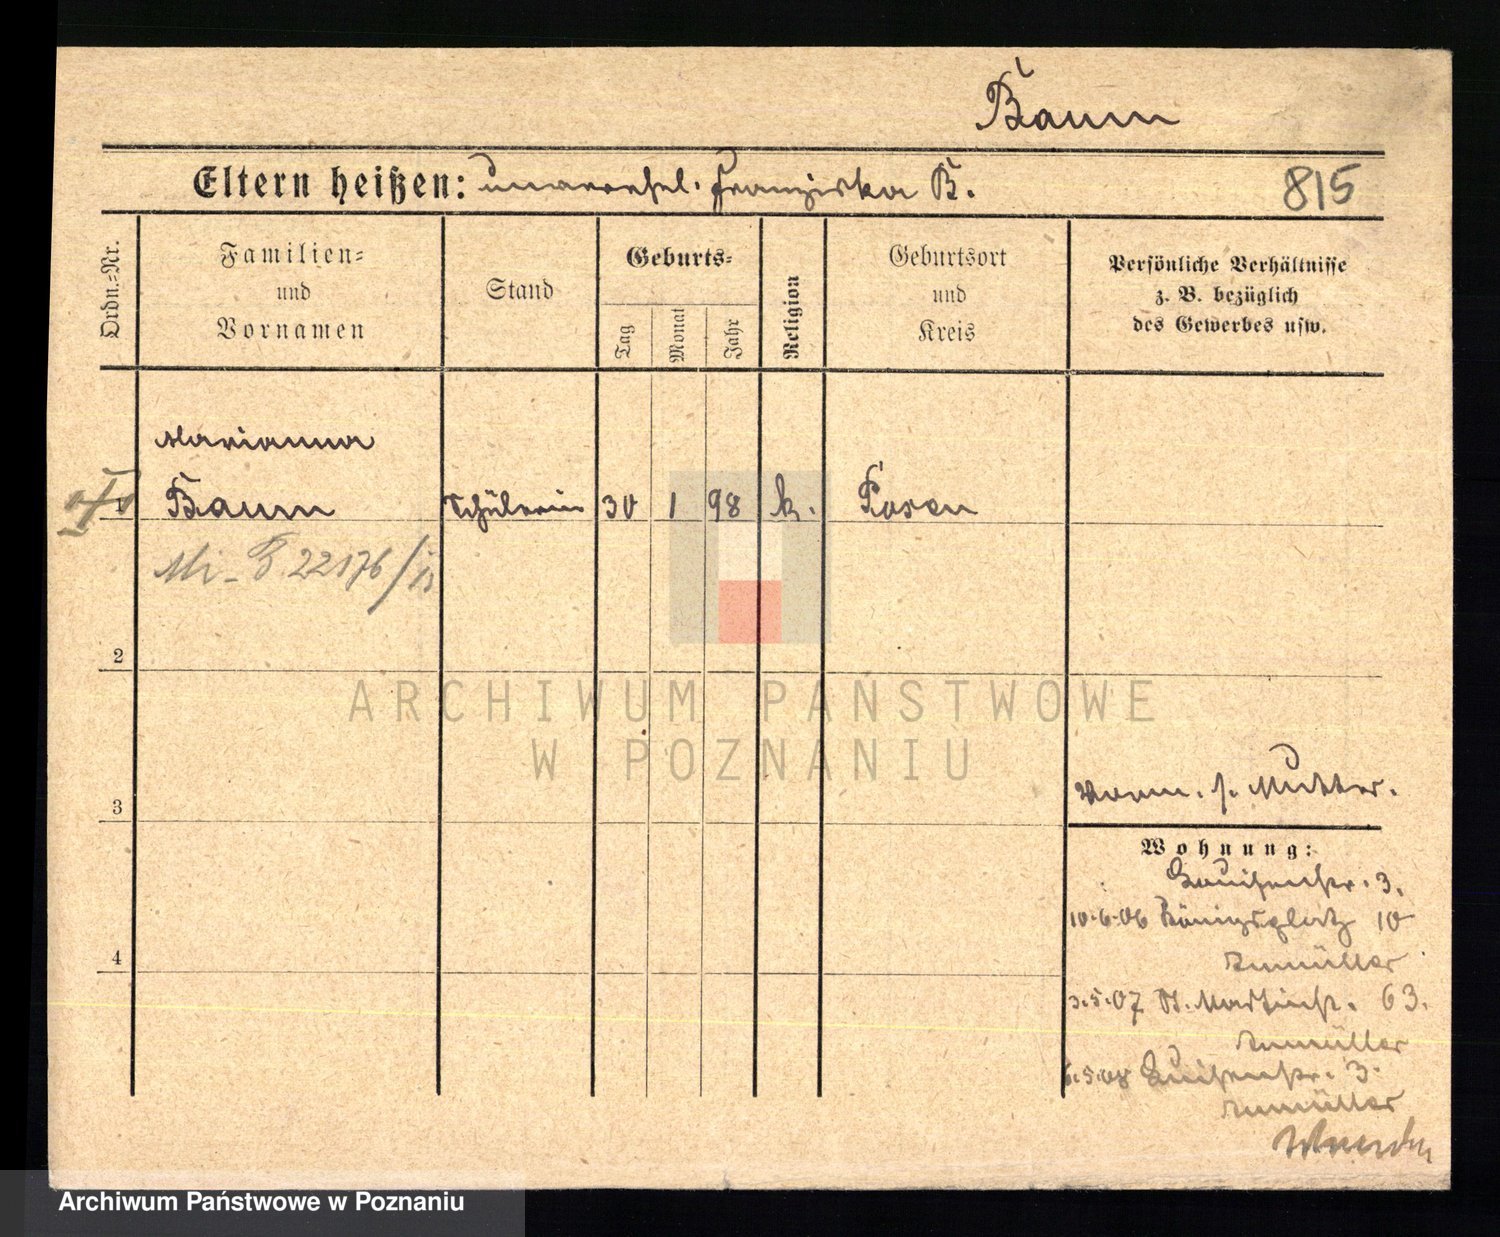 Baum
Eltern heißen: unverehel. Franziska B.
815
Ordn.-Nr.
Familien-
und
Vornamen
Stand
Geburts-
Tag
Monat
Jahr
Religion
Geburtsort
und
Kreis
Persönliche Verhältnisse
z. B. bezüglich
des Gewerbes usw.
Marianna
1 Baum Schülerin 30 1 98 k. Posen
22176/
2
ARCHIWUM PAŃSTWOWE
W POZNANIU
3
Vorm. s. Mutter.
Wohnung:
Louisenstr. 3.
10.6.06 Königsplatz 10
3.5.07 St. Martinstr. 63.
4
5.08 Luisenstr. 3.
Archiwum Państwowe w Poznaniu